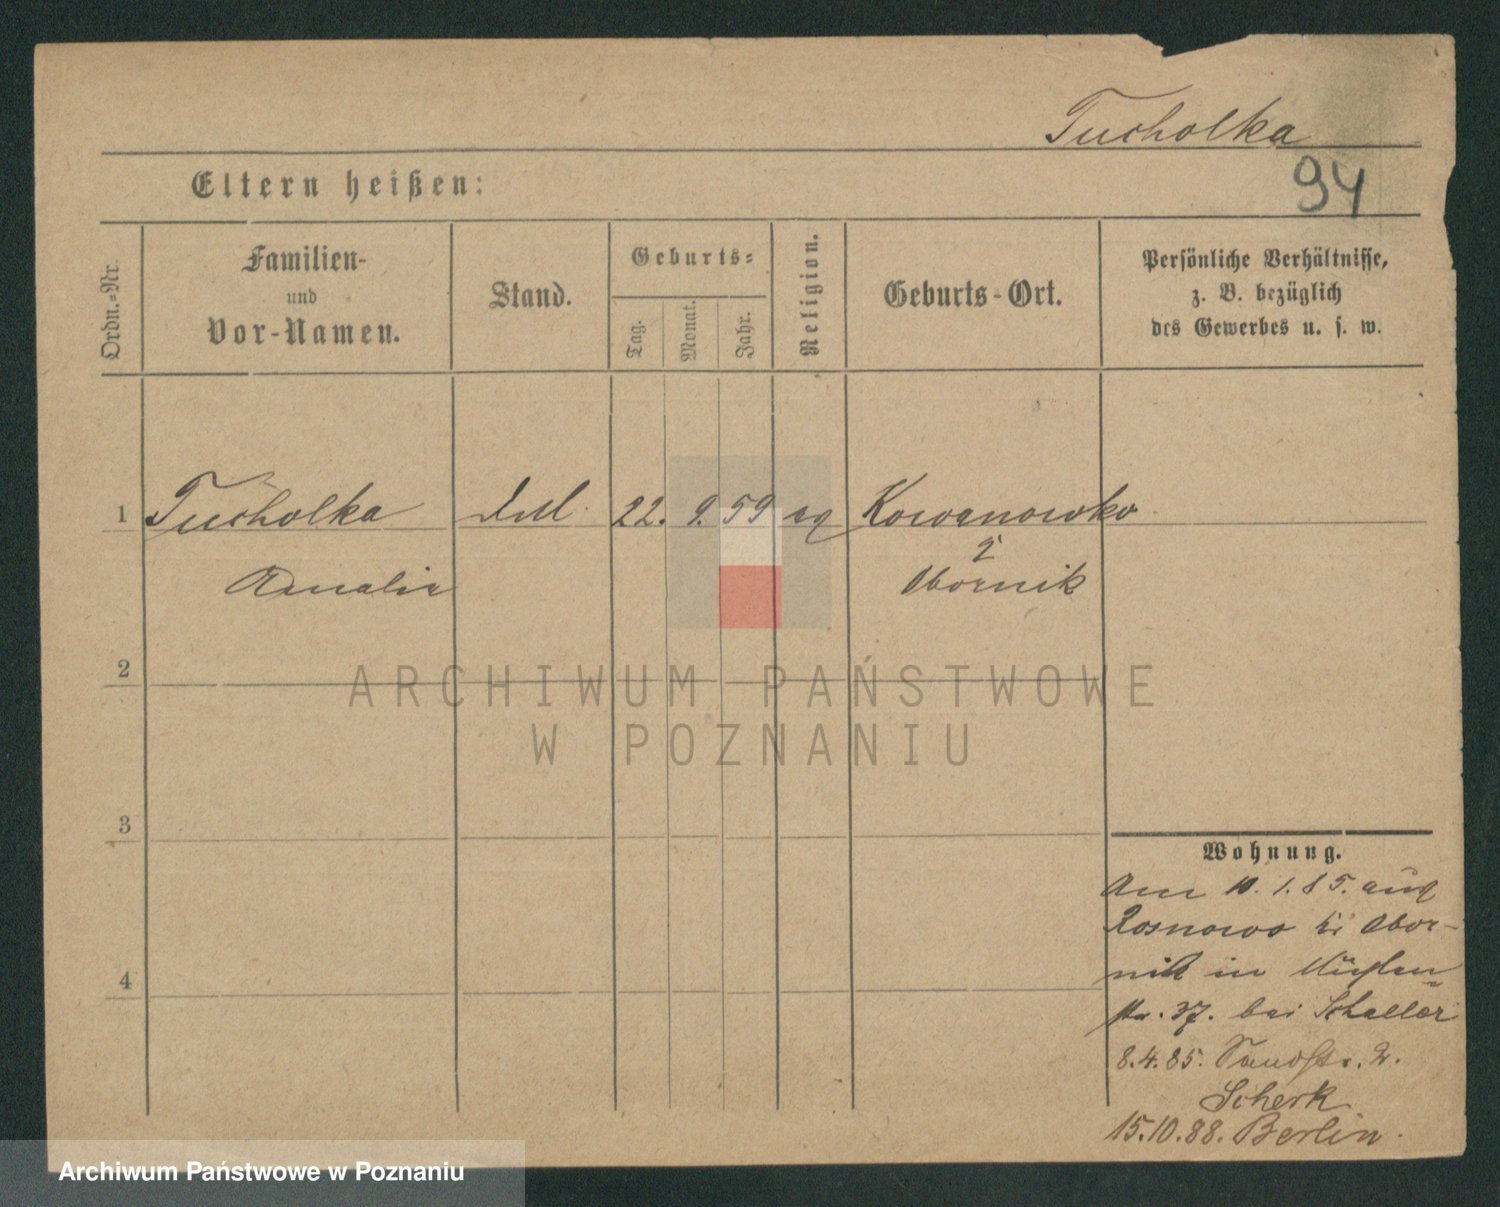 Tucholka
94
Eltern heißen:
Ordn.=Nr.
Familien-
und
Vor-Namen.
Stand.
Geburts=
Tag.
Monat.
Jahr.
Religion.
Geburts-Ort.
Persönliche Verhältnisse,
z. B. bezüglich
des Gewerbes u. s. w.
1 Tucholka 22. 9. 59 Kowanowko
Amalie Obornik
2
ARCHIWUM PAŃSTWOWE
W POZNANIU
3
4
Wohnung.
Am 10. 1. 85. aus
Rosnowo bei Obor-
nik in Mühlen
str. 37. bei Scheller
8. 4. 85. Sandstr. 2.
Scherk
15. 10. 88. Berlin.
Archiwum Państwowe w Poznaniu